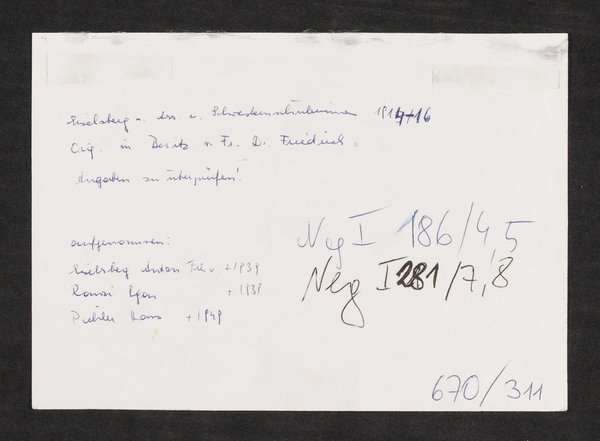 Eiselsberg u. Ass. u. Schwedenschülerinnen 1914+16
Orig. in Besitz v. Fr. Dr. Friedrich.
Angaben zu überprüfen!
aufgenommen:
Eiselsberg Anton Frh v. +1939
Ranzi Egon +1939
Pichler Hans +1949
Neg I 186/4,5
Neg I 281/7,8
670/311